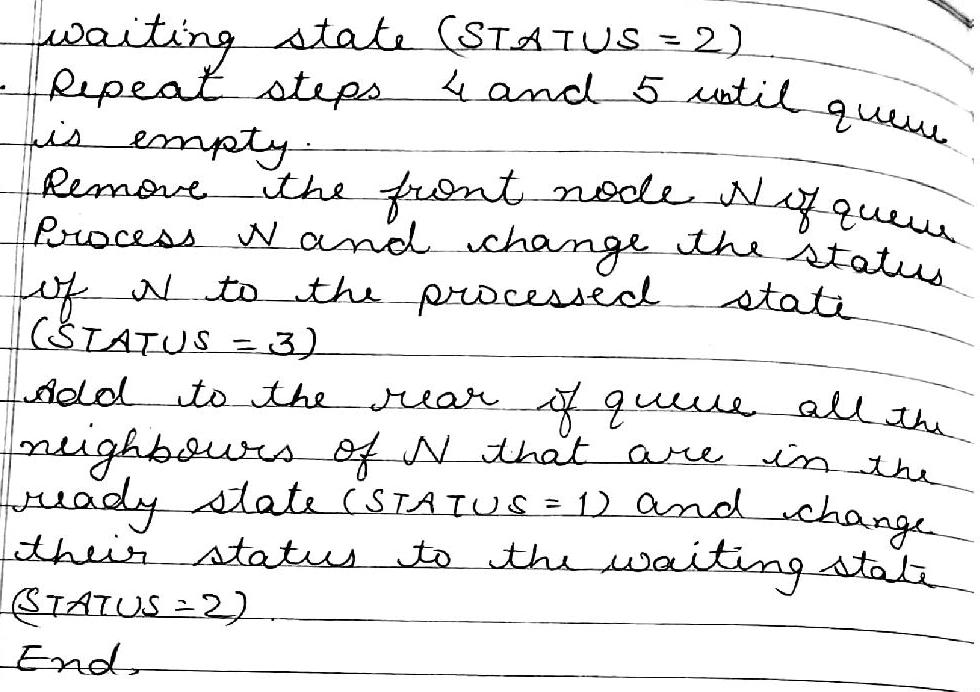 waiting state (STATUS = 2)
Repeat steps 4 and 5 until queue
is empty.
Remove the front node N of queue
Process N and change the status
of N to the processed state
(STATUS = 3)
Add to the rear of queue all the
neighbours of N that are in the
ready state (STATUS = 1) and change
their status to the waiting state
(STATUS = 2)
End.